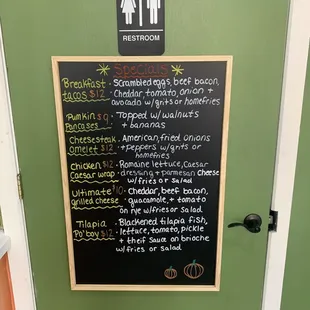 RESTROOM
Specials
Breakfast tacos $12 - Scrambled eggs, beef bacon,
Cheddar, tomato, onion +
avocado w/grits or homefries
Pumkin Pancases $9 - Topped w/walnuts
+ bananas
Cheesesteak omelet $12 - American, fried onions
+ peppers w/grits or
homefries
Chicken Caesar wrap $12 - Romaine lettuce, Caesar
dressing + parmesan cheese
w/fries or salad
Ultimate grilled cheese $10 - Cheddar, beef bacon,
guacamole, + tomato
on rye w/fries or salad
Tilapia Po'boy $12 - Blackened tilapia fish,
lettuce, tomato, pickle
+ theif sauce on brioche
w/fries or salad